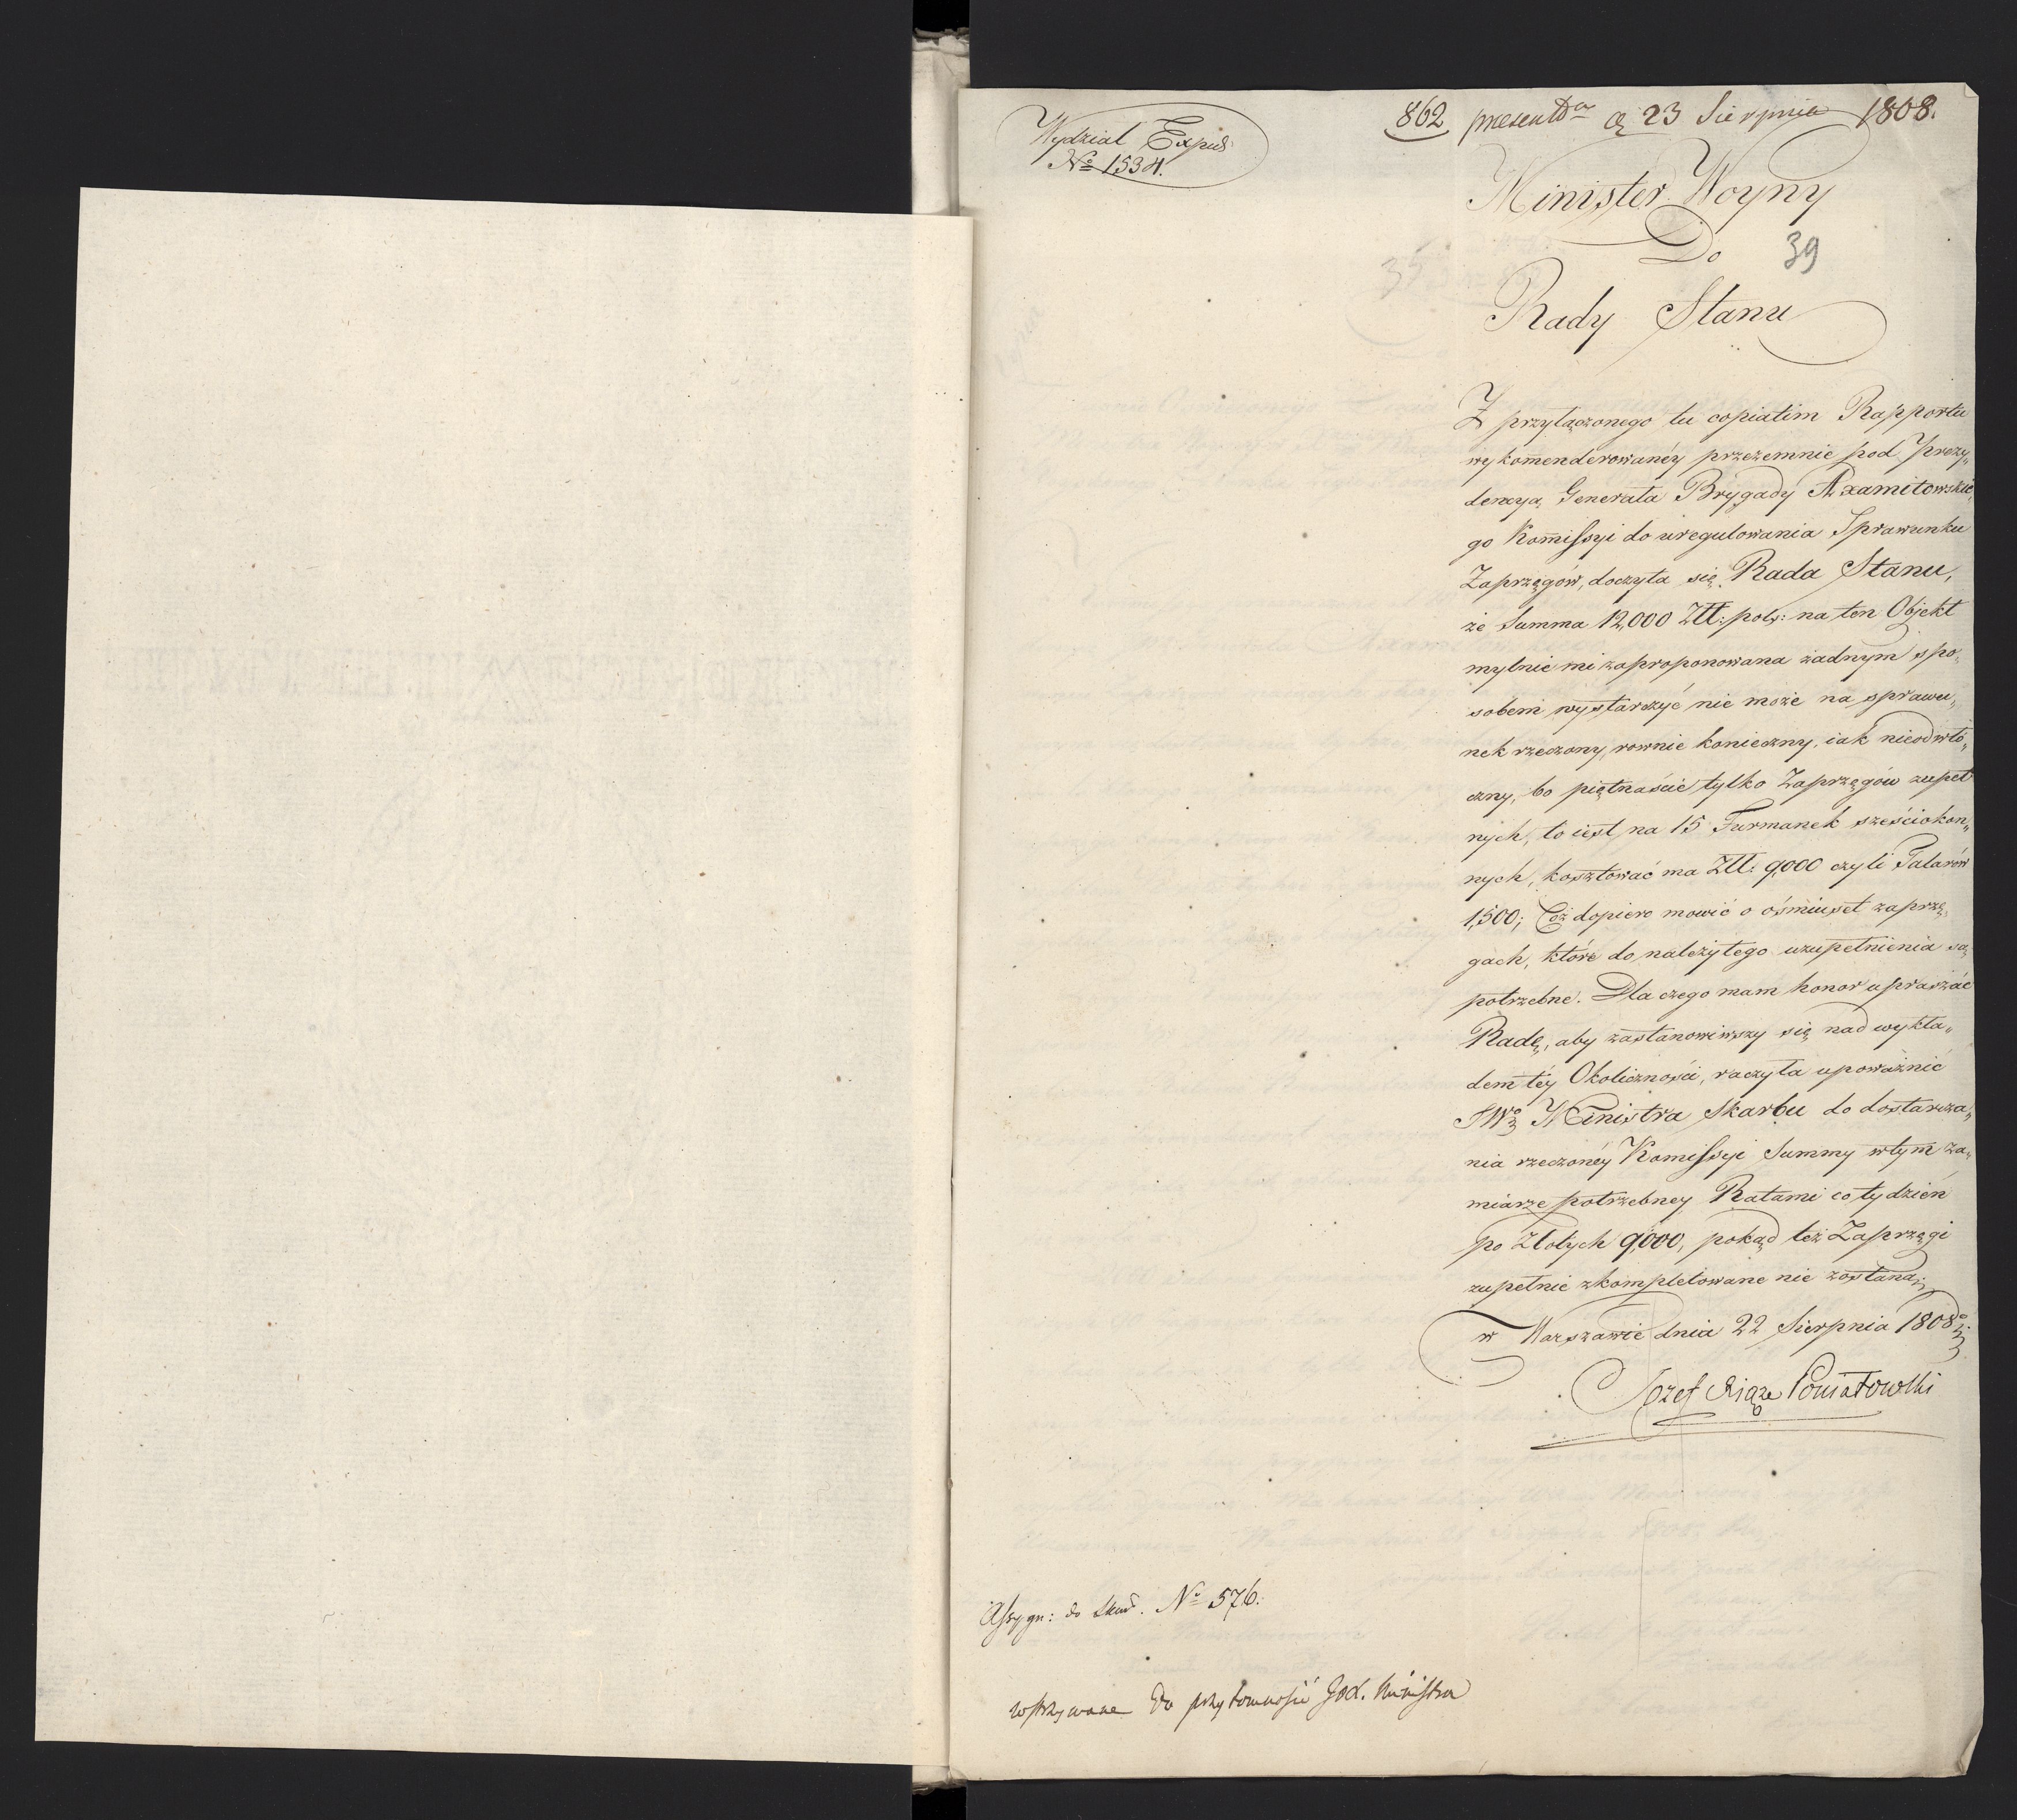 Wydział Exped:
Nº 1534.
862 praesentᵃ d. 23 Sierpnia 1808.
Minister Woyny
Do
39
35
Rady Stanu
Z przyłączonego tu copiatim Rapportu
wykom̄enderowanéy przezemnie pod Prezy„
dencyą Generała Brygady Axamitowskie„
go Kom̄issyi do uregulowania Sprawunku
Zaprzęgów, doczyta się Rada Stanu,
że Summa 12,000 Złł: pols: na ten Objekt
mylnie mi zaproponowana żadnym spo„
sobem wystarczyć nie może na sprawu„
nek rzeczony, rownie konieczny, iak nieodwło„
czny, bo piętnaście tylko Zaprzęgów zupeł
nych, to iest na 15 Furmanek sześciokon„
nych, kosztować ma Złł: 9,000 czyli Talarów
1,500; Coż dopiero mowić o ośmiuset zaprzę„
gach, które do należytego uzupełnienia są
potrzebne. Dla czego mam honor upraszać
Radę, aby zastanowiwszy się nad wykła„
dem téy Okoliczności, raczyła upoważnić
JWº Ministra Skarbu do dostarcza„
nia rzeczonéy Komissyi Summy w tym za„
miarze potrzebney Ratami co tydzień
po Złotych 9,000, pokąd też Zaprzęgi
zupełnie zkompletowane nie zostaną;
w Warszawie dnia 22 Sierpnia 1808
Jozef Xiąże Poniatowski
Assygn: do Skarb. Nº 576.
wstrzymane do przytomności JOX. Ministra